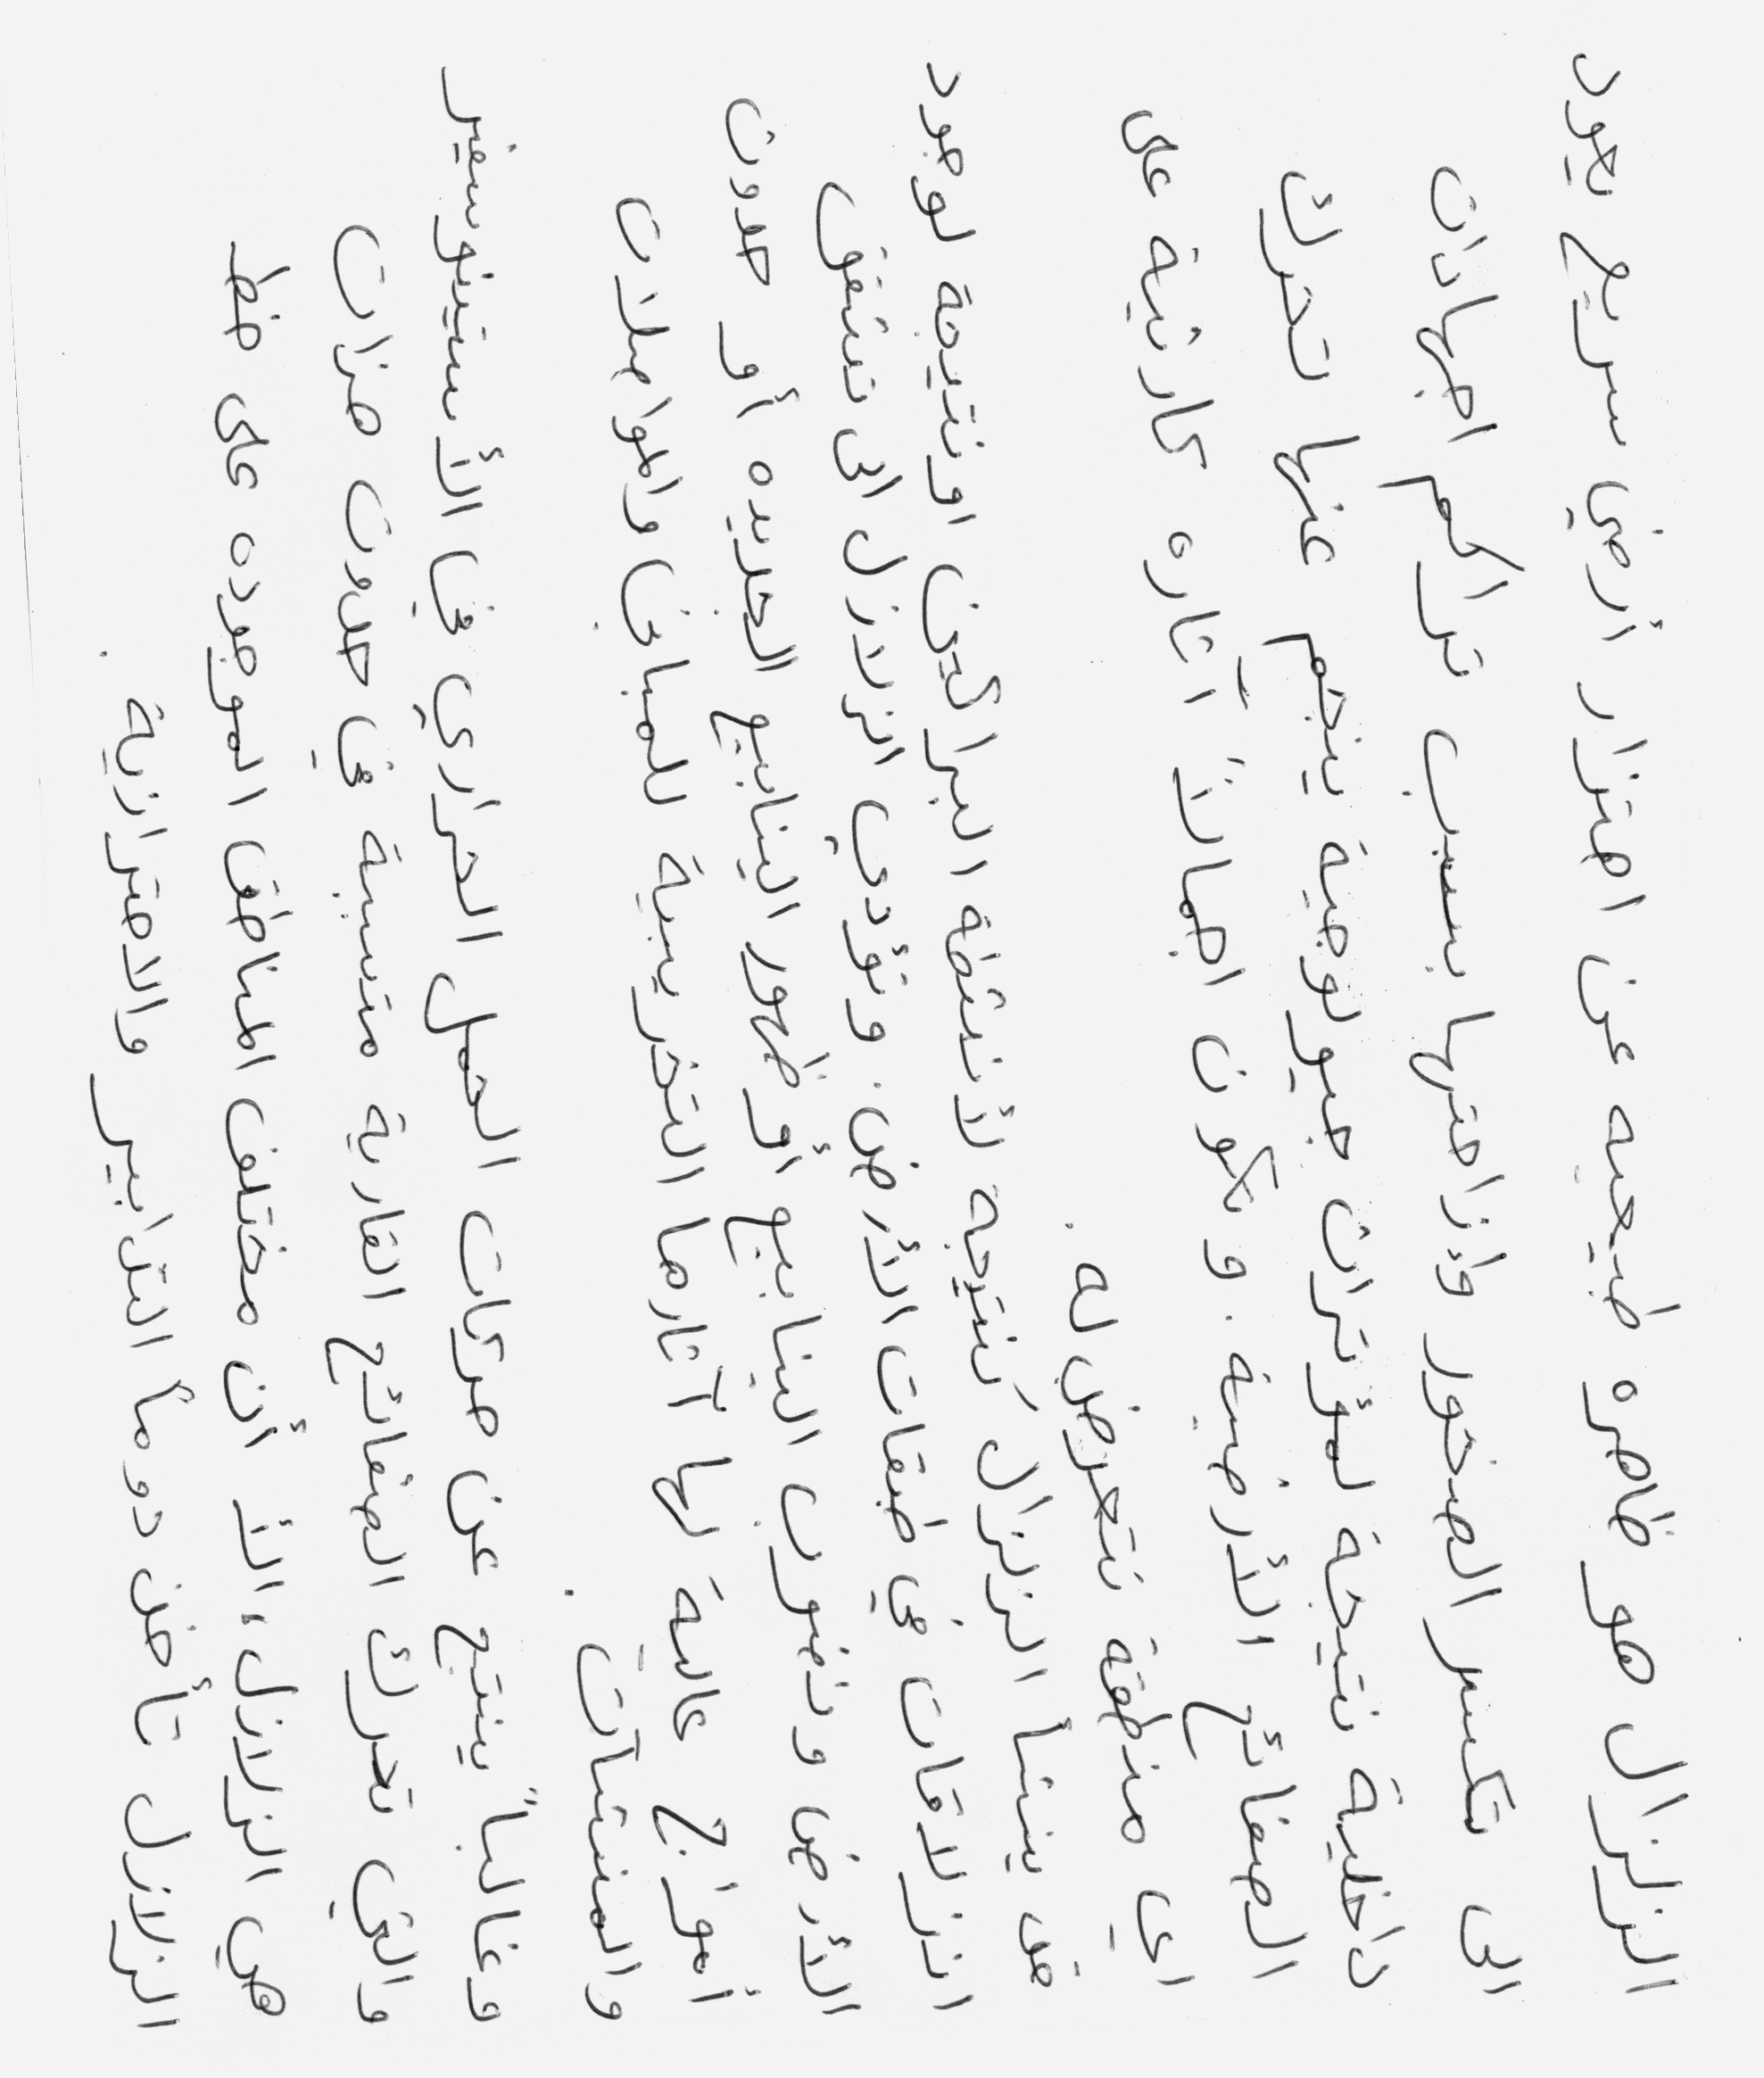 الزلزال هو ظاهره طبيعيه عن اهتزاز أرضي سريع يعود
الى تكسر الصخور وإزاحتها بسبب تراكم اجهادات
داخلية نتيجة لمؤثرات جيولوجية ينجم عنها تحرك
الصفائح الأرضية. و تكون اجمالاً آثاره كارثية على
اي منطقة تتعرض له.
قد ينشأ الزلزال كنتيجه لأنشطه البراكين اونتيجة لوجود
انزلاقات في طبقات الأرض. وتؤدي الزلازل الى تشقق
الأرض ونضوب الينابيع أو ظهور الينابيع الجديده أو حدوث
أمواج عالية لها آثارها التخريبية للمباني والمواصلات
والمنشآت.
وغالباً ينتج عن حركات الحمل الحراري في الأستينوسفير
والتي تحرك الصفائح القارية متسببة في حدوث هزات
هي الزلازل، الا أن مختلف المناطق الموجوده على خط
الزلازل تأخذ دوماً التدابير والاهتزازية.